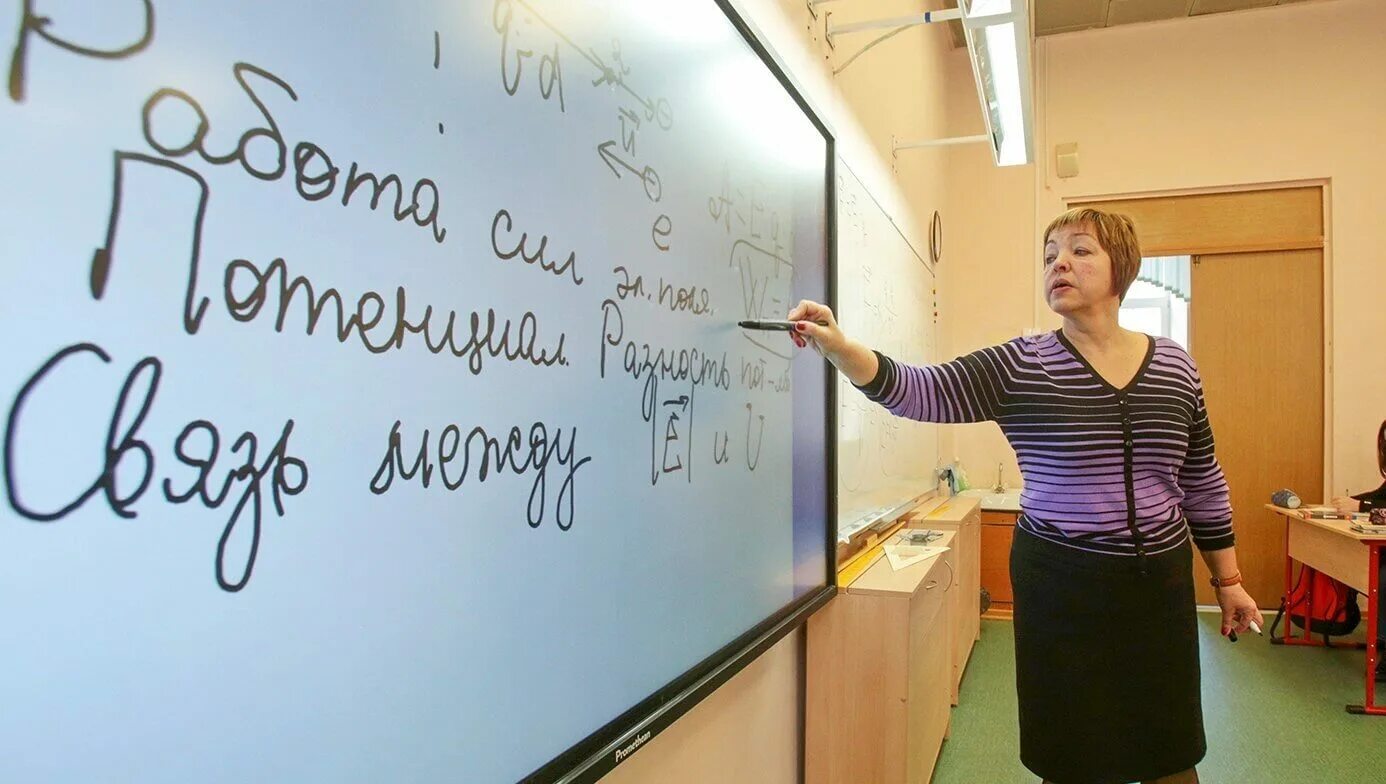 e
A = Eq
W =
Работа сил эл. поля.
Потенциал. Разность пот-лов
Связь между |E⃗| и U
Promethean